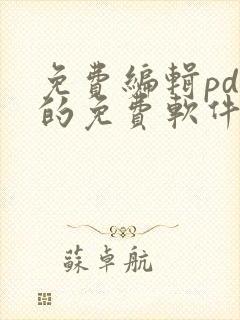 免費編輯pd
的免費軟件
蘇卓航